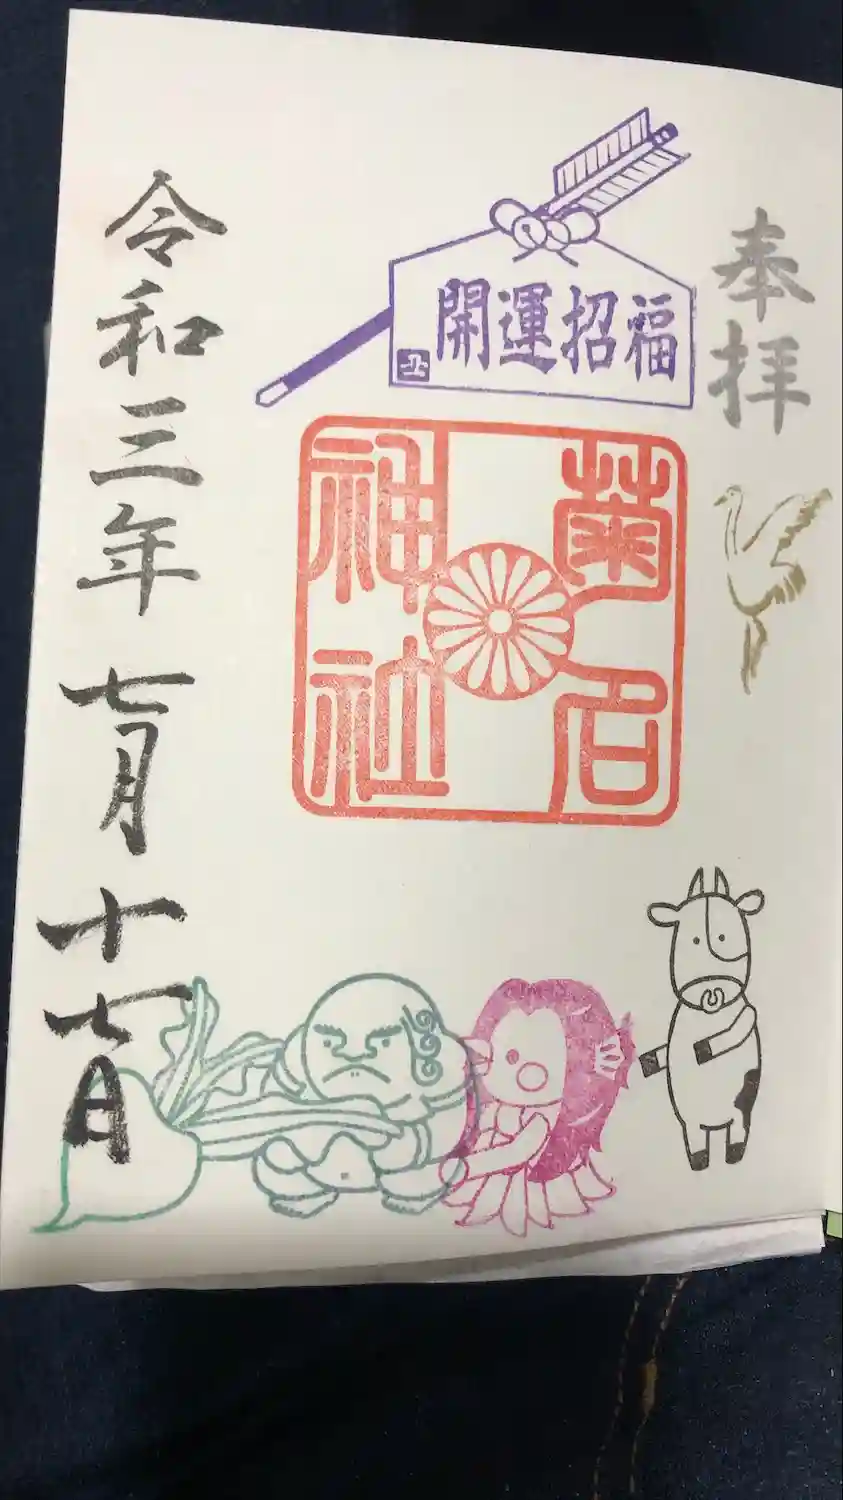 奉拝
開運招福
丑
菊名
神社
令和三年七月十七日